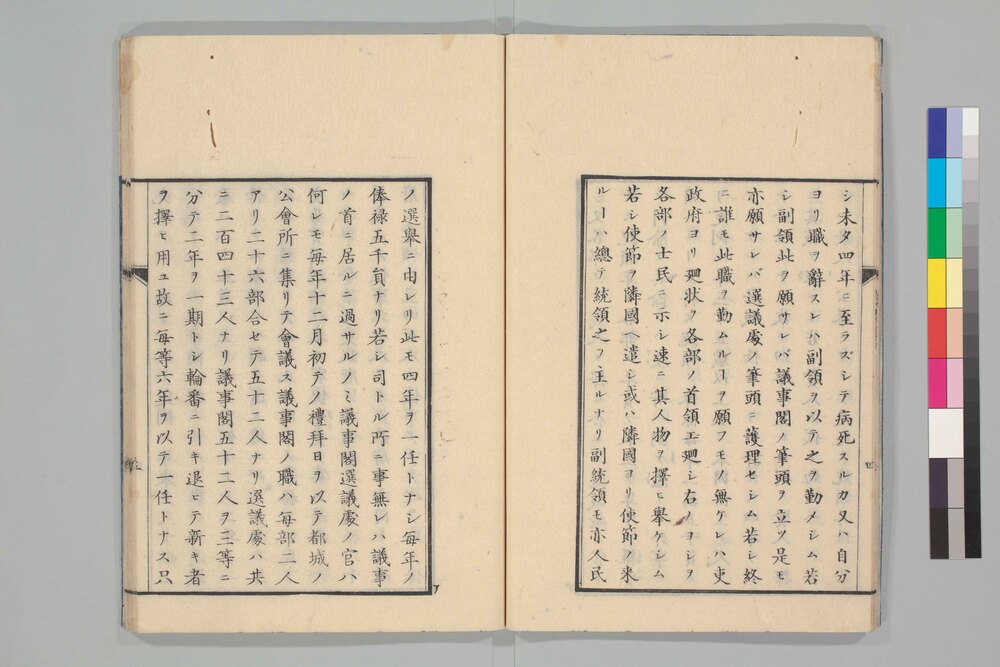 シ未タ四年ニ至ラズシテ病死スルカ又ハ自分
ヨリ職ヲ辭スレハ副領ヲ以テ之ヲ勤メシム若
シ副領此ヲ願サレバ議事閣ノ筆頭ヲ立ツ是モ
亦願サレバ選議處ノ筆頭ニ護理セシム若シ終
ニ誰モ此職ヲ勤ムルヿヲ願フモノ無ケレハ吏
政府ヨリ廻状ヲ各部ノ首領エ廻シ右ノヨシヲ
各部ノ士民ニ示シ速ニ其人物ヲ擇ヒ舉ケシム
若シ使節ヲ隣國ヘ遣シ或ハ隣國ヨリ使節ノ来
ルヿハ總テ統領之ヲ主ルナリ副統領モ亦人民
ノ選舉ニ由レリ此モ四年ヲ一任トナシ毎年ノ
俸禄五千員ナリ若シ司トル所ニ事無レハ議事
ノ首ニ居ルニ過サルノミ議事閣選議處ノ官ハ
何レモ毎年十二月初テノ禮拜日ヲ以テ都城ノ
公會所ニ集リテ會議ス議事閣ノ職ハ毎部二人
アリ二十六部合セテ五十二人ナリ選議處ハ共
ニ二百四十三人ナリ議事閣五十二人ヲ三等ニ
分テ二年ヲ一期トシ輪番ニ引キ退ヒテ新キ者
ヲ擇ヒ用ユ故ニ毎等六年ヲ以テ一任トナス只